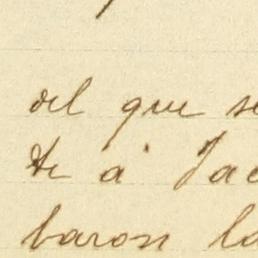 del que se
te á Jac
baron la